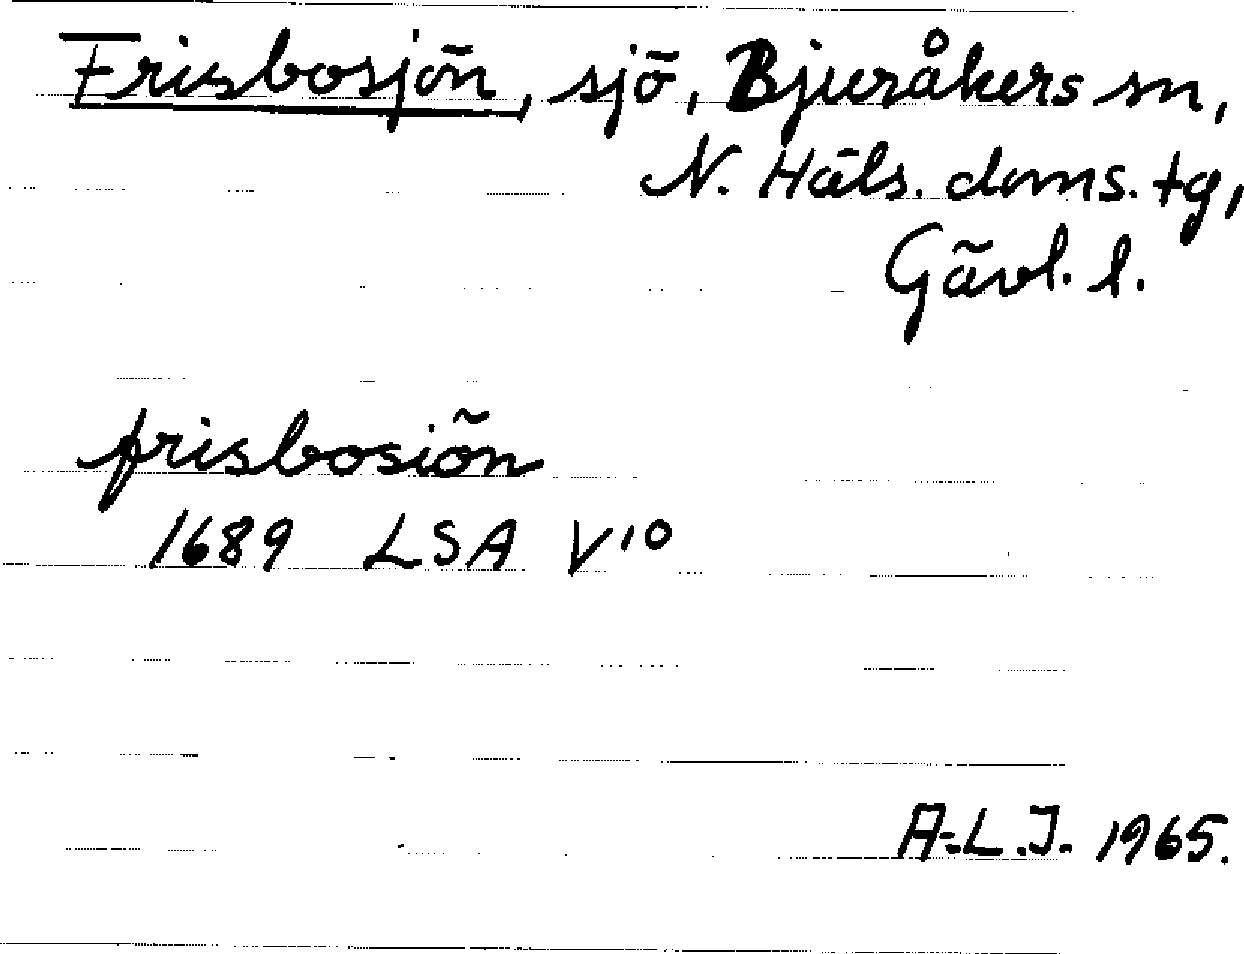 Frisbosjön, sjö, Bjuråkers sn,
N. Häls. doms. tg,
Gävl. l.
frisbosiön
1689 LSA V10
A-L.J. 1965.